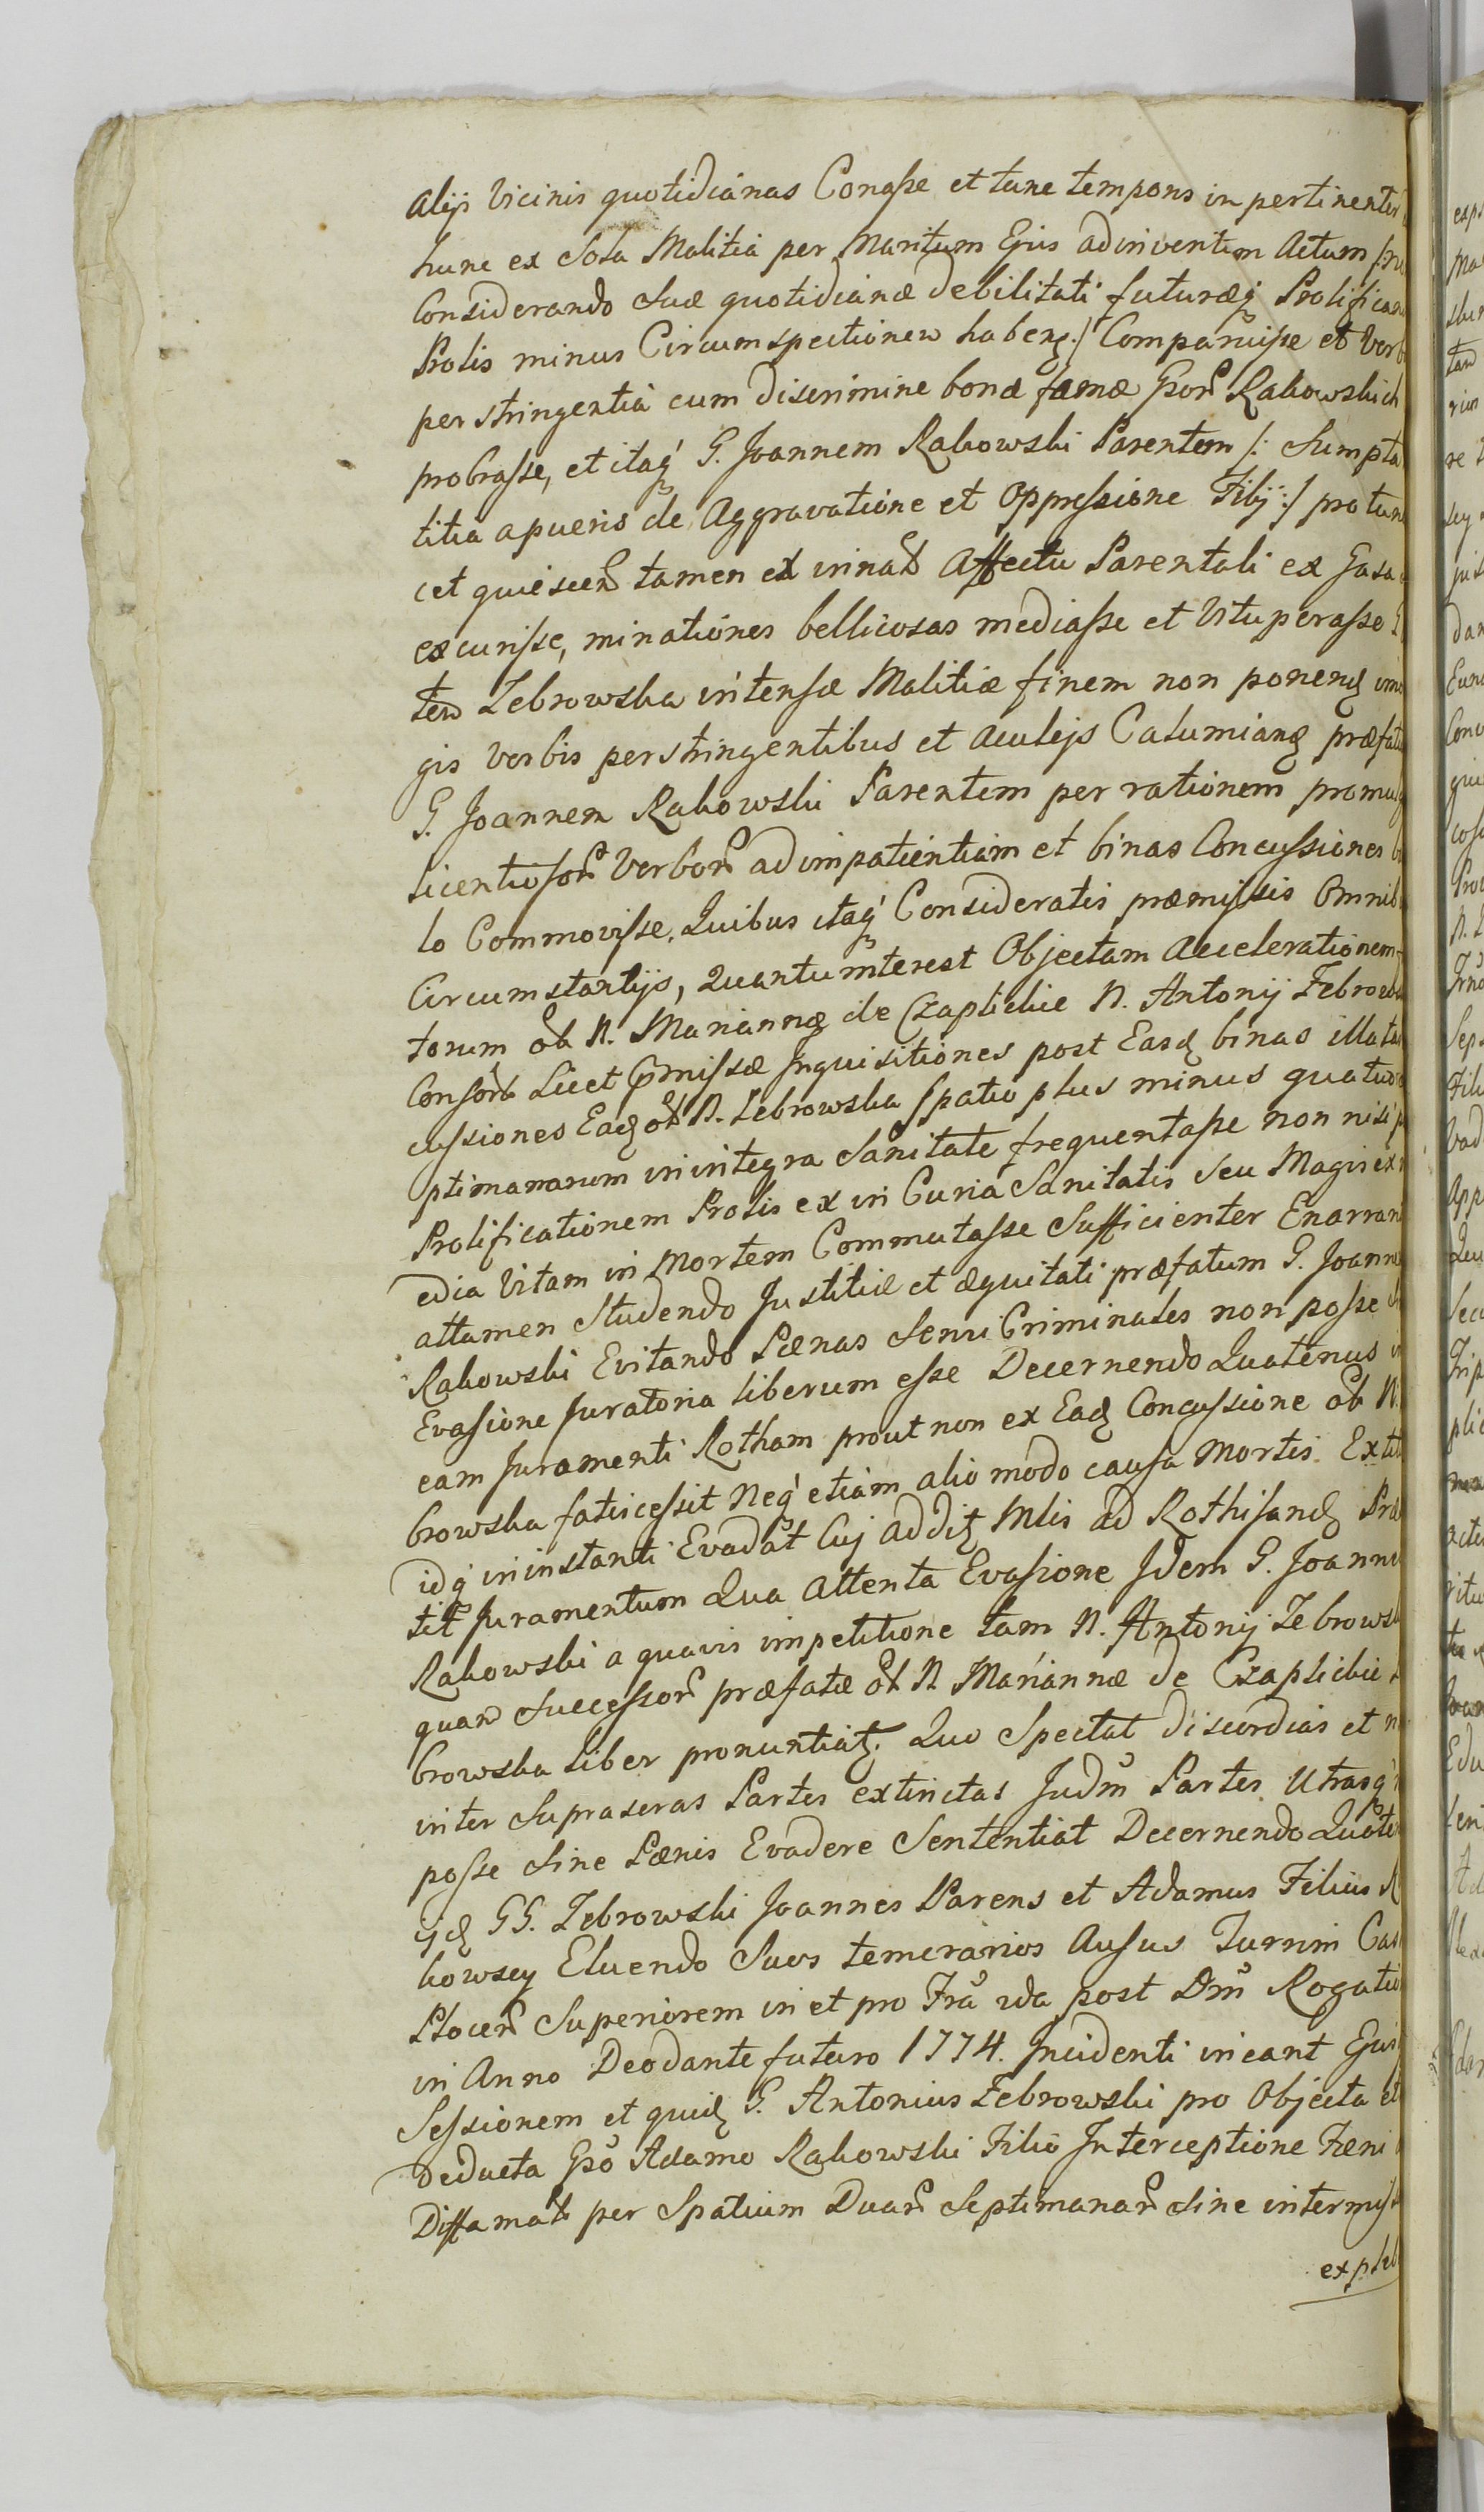 Alijs Vicinis quotidianas Conasse et tunc temporis in pertinentijs
hunc ex Sola Malitia per Maritum Ejus adinventum Actum
Considerando Suæ quotidianæ debilitati futuræq Prolifican
Prolis minus Circumspectionem habenę./ Comparuisse et Verb
perstringentia cum discrimine bonæ famæ Gsor Rakowskich
probrasse, et itaq G. Joannem Rakowski Parentem /: Sumpta
titia a pueris de Aggravatione et Oppressione Filij :/ pro tunc
cet quiescen tamen ex innat Affectu Parentali ex Gasa
excurisse, minationes bellicosas mediasse et Vituperasse
tem Zebrowska intensæ Malitiæ finem non ponenę imo
gis Verbis perstringentibus et Aculejs Calumianę præfatu
G. Joannem Rakowski Parentem per rationem promulg
licentiosor Verbor ad impatientiam et binas Concussiones
lo Commovisse. Quibus itaq Consideratis præmissis Omnib
Circumstantijs, Quantum interest Objectam Accelerationem
torum ol N. Mariannę de Czaplickie N. Antonij Zebrowsk
Consort Licet Præmissæ Inquisitiones post Easd binas illatas
cussiones Ead ol N. Zebrowska Spatio plus minus quatuor
ptimanarum in integra Sanitate frequentasse non nisi p
Prolificationem Prolis ex in Curia Sanitatis Seu Magis ex
edia Vitam in Mortem Commutasse Sufficienter Enarran
attamen Studendo Justitiæ et æquitati præfatum G. Joanne
Rakowski Evitando Pænas Semi Criminales non posse
Evasione Juratoria liberum esse Decernendo Quatenus in
eam Juramenti Rotham prout non ex Ead Concussione ol N.
browska fatis cessit Neq etiam alio modo causa Mortis Extit
idq in instanti Evadat Cuj addit Mlis ad Rothisand Præ
tit Juramentum Qua Attenta Evasione Idem G. Joannes
Rakowski a quavis impetitione tam N. Antonij Zebrowsk
quam Successor præfatæ ol N. Mariannæ de Czaplickie
browska liber pronuntiat. Quo Spectat discordias et
inter Supraseras Partes extinctas Judm Partes Utrasq
posse Sine Pænis Evadere Sententiat Decernendo Quaten
ijd GG. Zebrowski Joannes Parens et Adamus Filius R
kowscy Eluendo Suos temerarios Ausus Turrim Cas
Plocen Superiorem in et pro Fra 2da post Dm Rogatio
in Anno Deo dante futuro 1774. Incidenti ineant Ejus
Sessionem et quid G. Antonius Zebrowski pro Objecta et
deducta Gso Adamo Rakowski Filio Interceptione Fæni
Diffamat per Spatium Duar Septimanar Sine intermis
expleb